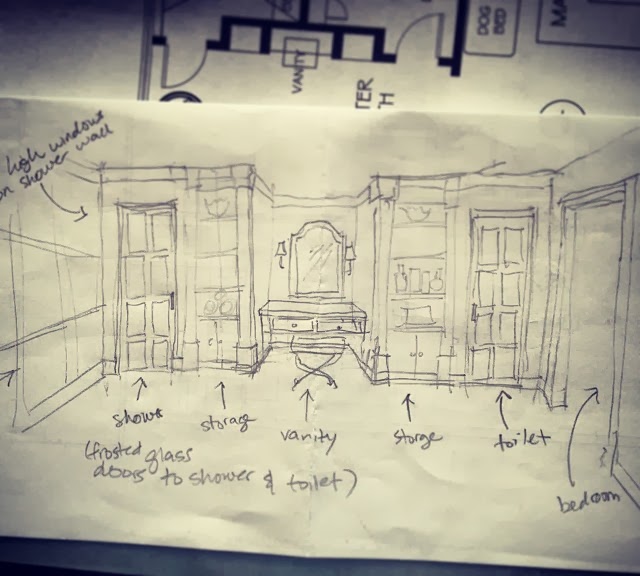 DOG
BED
MA
VANITY
TER
high windows
on shower wall
shower
storage
vanity
storge
toilet
(frosted glass
doors to shower & toilet)
bedroom